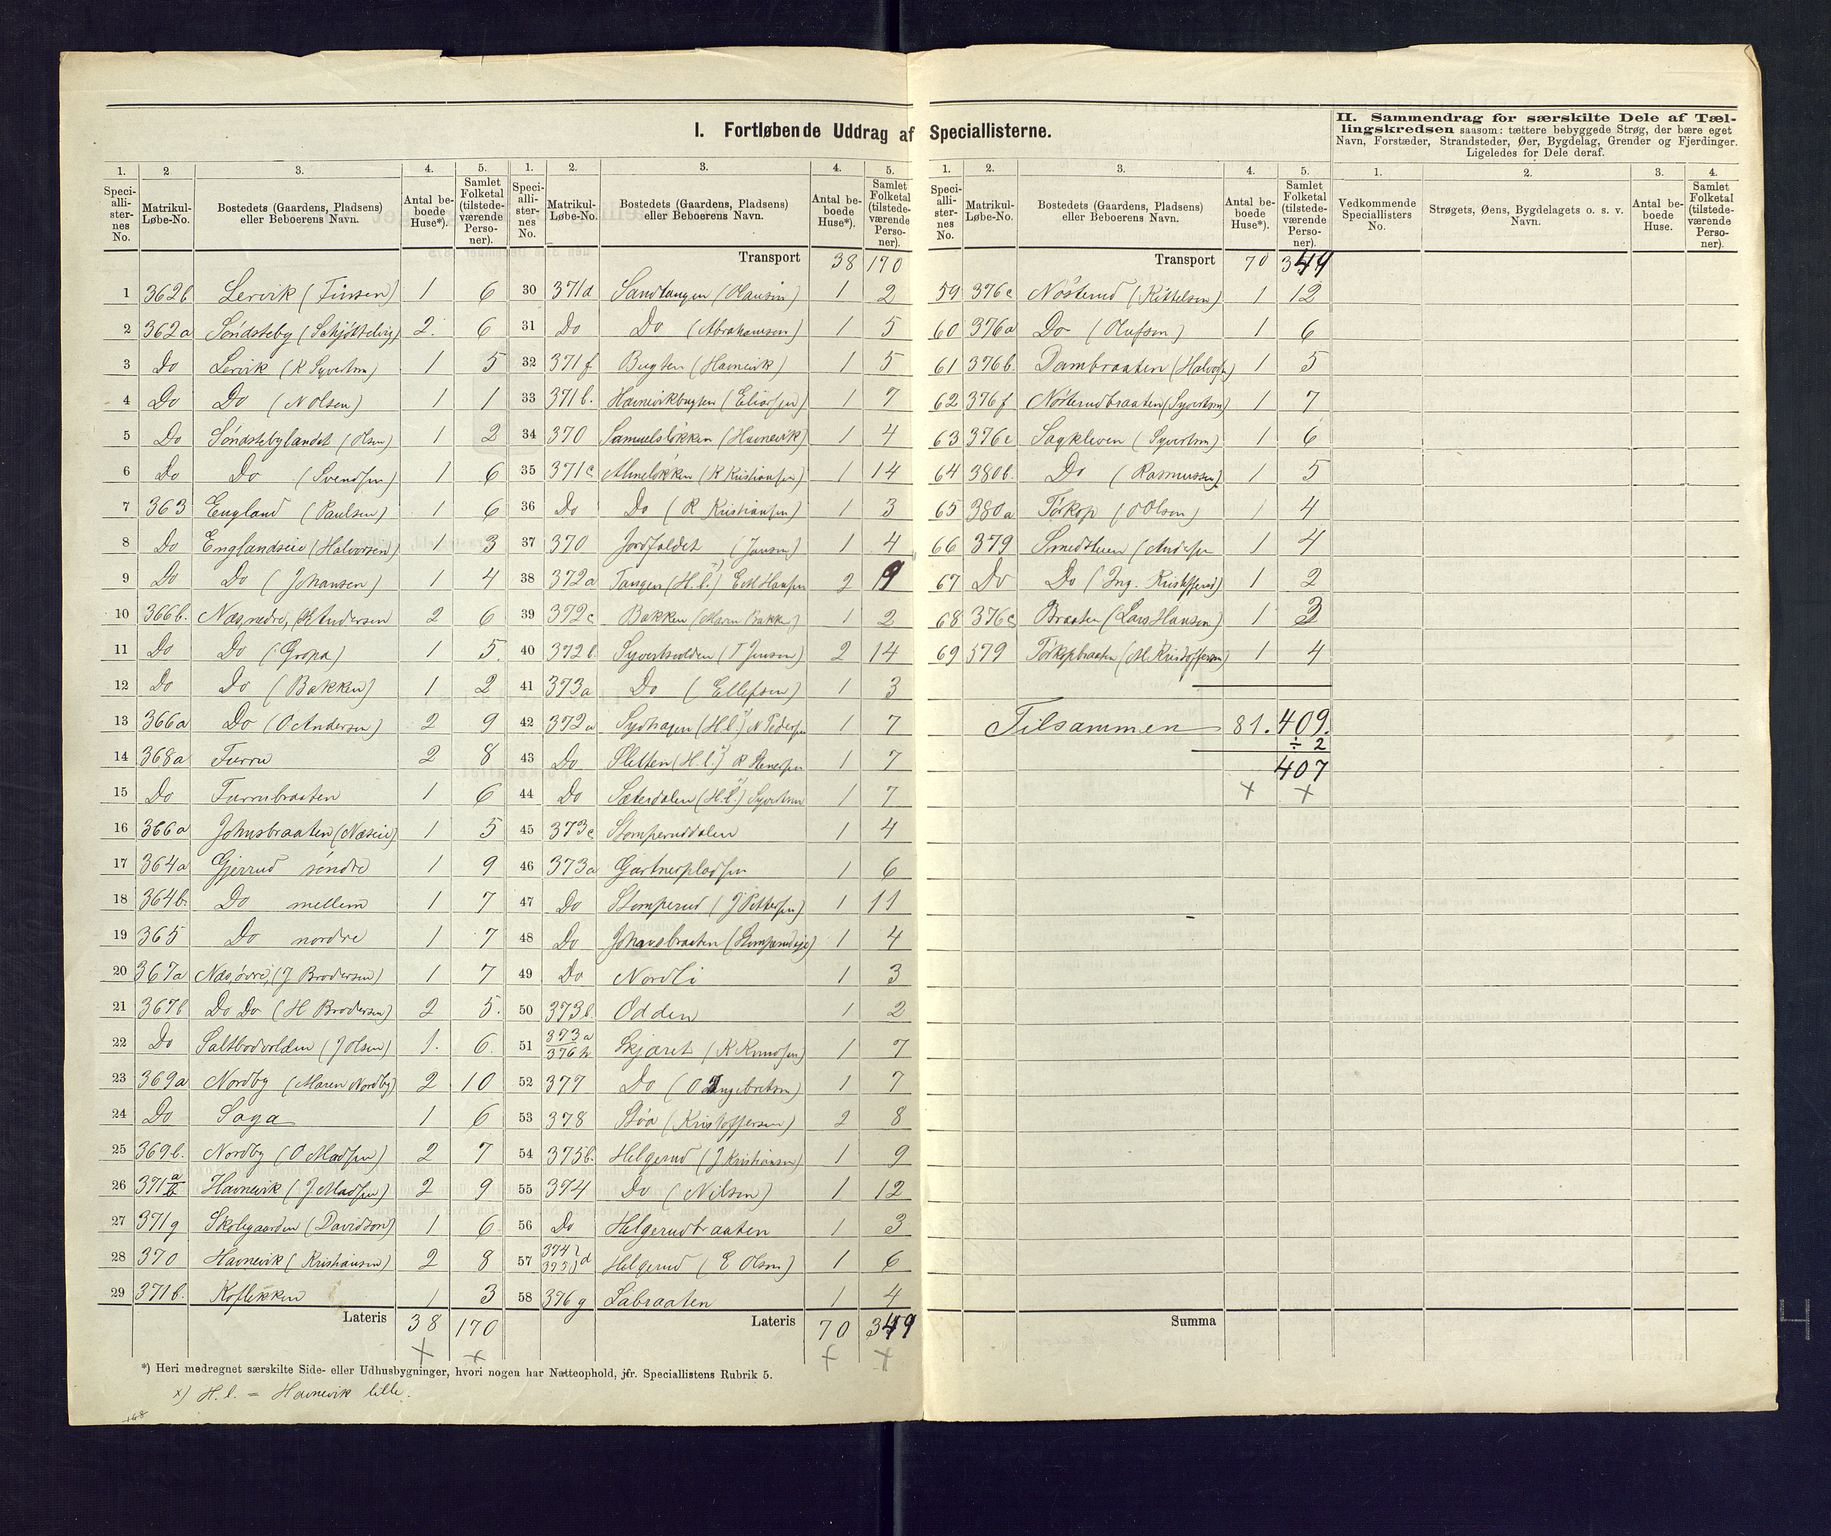 I. Fortløbende Uddrag af Speciallisterne.
1. 2 3. 4. 5.
Speciallisternes No. Matrikul-Løbe-No. Bostedets (Gaardens, Pladsens) eller Beboerens Navn. Antal beboede Huse*). Samlet Folketal (tilstedeværende Personer).
1 362b Lervik (Finsen) 1 6
2 362a Söndsteby (Schjöttelvig) 2. 6
3 Do Lervik (R Syvertsen) 1 5
4 Do Do (N Olsen) 1 1
5 Do Söndstebylandet (Olsen) 1 2
6 Do Do (Svendsen) 1 6
7 363 England (Paulsen) 1 6
8 Do Englandseie (Halvorsen) 1 3
9 Do Do (Johansen) 1 4
10 366b. Næs, nedre, (H Andersen 2 6
11 Do Do (Gropa) 1 5.
12 Do Do (Bakken) 1 2
13 366a Do (O Andersen) 2 9
14 368a Furru 2 8
15 Do Furrubraaten 1 6
16 366a Johnsbraaten (Næseie) 1 5
17 364a Gjerrud söndre 1 9
18 364b. Do mellem 1 7
19 365 Do nordre 1 7
20 367a Næs, övre, (J Brodersen) 1 7
21 367b Do Do (H Brodersen) 2 5.
22 Do Saltbodvolden (J Olsen) 1. 6.
23 369a Nordby (Maren Nordby) 2 10
24 Do Saga 1 6
25 369b. Nordby (O Madsen) 2 7
26 371 a/b Havnevik (J Madsen) 2 9
27 371g Skolegaarden (Davidson) 1 6
28 370 Havnevik (Kristiansen) 2 8
29 371b. Koflekken 1 3
Lateris 38 170
1. 2. 3. 4. 5.
Speciallisternes No. Matrikul-Løbe-No. Bostedets (Gaardens, Pladsens) eller Beboerens Navn. Antal beboede Huse*). Samlet Folketal (tilstedeværende Personer).
Transport 38 170
30 371d Sandtangen (Hansin) 1 2
31 Do Do (Abrahamsen) 1 5
32 371f Bugten (Havnevik) 1 5
33 371b. Havnevikbugten (Eliassen) 1 7
34 370 Samuelslökken (Havnevik) 1 4
35 371c Almelökken (K Kristiansen) 1 14
36 Do Do (R Kristiansen) 1 3
37 370 Jordfaldet (Jansen) 1 4
38 372a Tangen (H. l. x) E M Hansen 2 9
39 372c Bakken (Maren Bakke) 1 2
40 372b. Syvertsvolden (T Jensen) 2 14
41 373a Do (Ellefsen) 1 3
42 372a Sydhagen (H. l. x) N Pedersen 1 7
43 Do Sletten (H. l. x) R Stenersen 1 7
44 Do Sæterdalen (H. l. x) Syvertsen 1 7
45 373c Stomperuddalen 1 4
46 373a Gartnerpladsen 1 6
47 Do Stomperud (J Pettersen) 1 11
48 Do Johansbraaten (Stomperudeje) 1 4
49 Do Nordli 1 3
50 373b. Odden 1 2
51 373a 376h Skjæret (K Knudsen) 1 7
52 377 Do (O Ingebretsen) 1 7
53 378 Böa (Kristoffersen) 2 8
54 375b. Helgerud (J Kristiansen) 1 9
55 374 Do (Nilsen) 1 12
56 Do Helgerudbraaten 1 3
57 374 375 d Helgerud (E Olsen) 1 6
58 376g Labraaten 1 4
Lateris 70 349
1. 2. 3. 4. 5.
Speciallisternes No. Matrikul-Løbe-No. Bostedets (Gaardens, Pladsens) eller Beboerens Navn. Antal beboede Huse*). Samlet Folketal (tilstedeværende Personer).
Transport 70 349
59 376c Nösterud (Kittelsen) 1 12
60 376a Do (Olufsen) 1 6
61 376b Dambraaten (Halvorsen) 1 5
62 376f Nösterudbraaten (Syvertsen) 1 7
63 376e Sagkleven (Syvertsen) 1 6
64 380b. Do (Rasmussen) 1 5
65 380a Törkop (O Olsen) 1 4
66 379 Smedstuen (Andersen 1 4
67 Do Do (Ing. Kristoffersd) 1 2
68 376c Braaten (Lars Hansen) 1 3
69 579 Törkopbraaten (M. Kristoffersen) 1 4
Tilsammen 81. 409.
÷ 2
407
Summa
II. Sammendrag for særskilte Dele af Tællingskredsen saasom: tættere bebyggede Strøg, der bære eget Navn, Forstæder, Strandsteder, Øer, Bygdelag, Grender og Fjerdinger. Ligeledes for Dele deraf.
1. 2. 3. 4.
Vedkommende Speciallisters No. Strøgets, Øens, Bygdelagets o. s. v. Navn. Antal beboede Huse. Samlet Folketal (tilstedeværende Personer).
*) Heri medregnet særskilte Side- eller Udhusbygninger, hvori nogen har Natteophold, jfr. Speciallistens Rubrik 5.
x) H. l. = Havnevik lille.
168